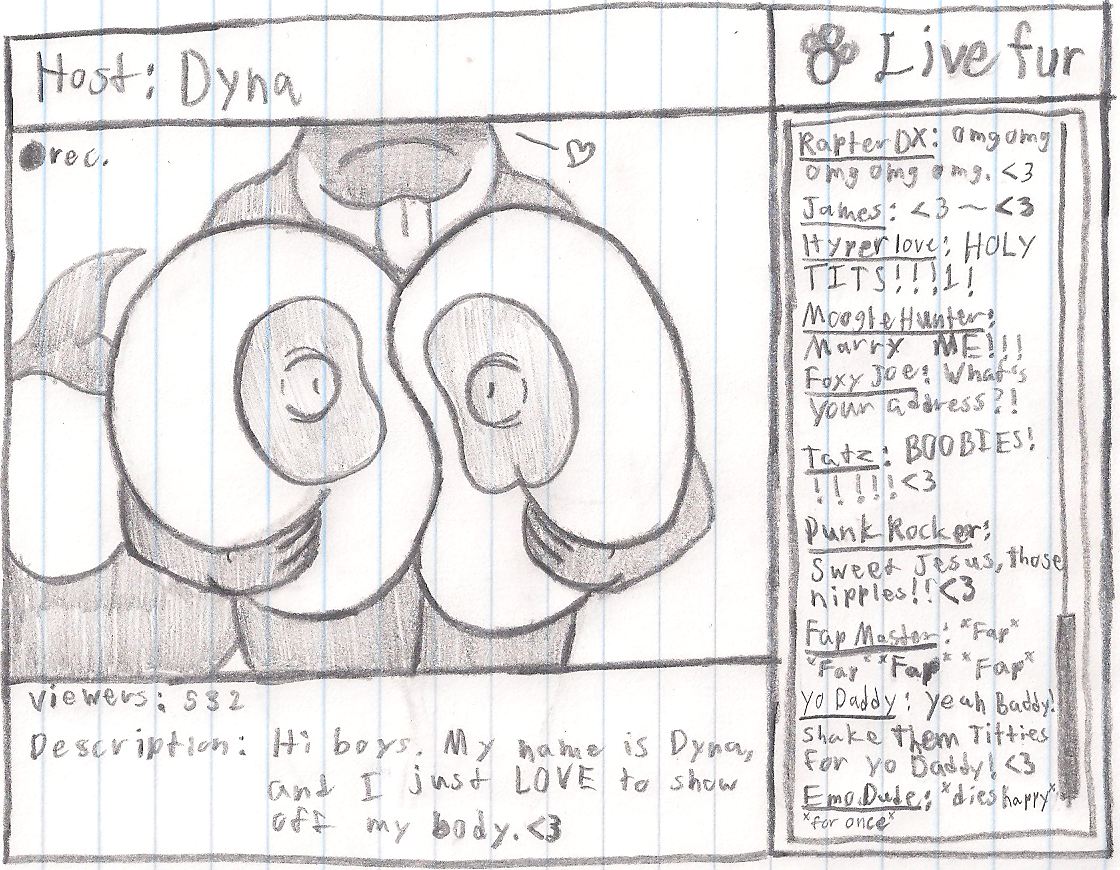 Host: Dyna
rec.
Live fur
RapterDX: omg omg
omg omg omg. <3
James: <3 ~ <3
Hyper love: HOLY
TITS!!!1!
MoogleHunter:
Marry ME!!!
Foxy Joe: What's
your address?!
Tatz: BOOBIES!
!!!!!<3
Punk Rocker:
Sweet Jesus, those
nipples!!<3
Fap Master: *Fap*
*Fap* *Fap* *Fap*
yo Daddy: yeah Baddy!
shake them Titties
For yo Daddy! <3
Emo.Dude: *dies happy*
*for once*
viewers: 532
Description: Hi boys. My name is Dyna,
and I just LOVE to show
off my body.<3